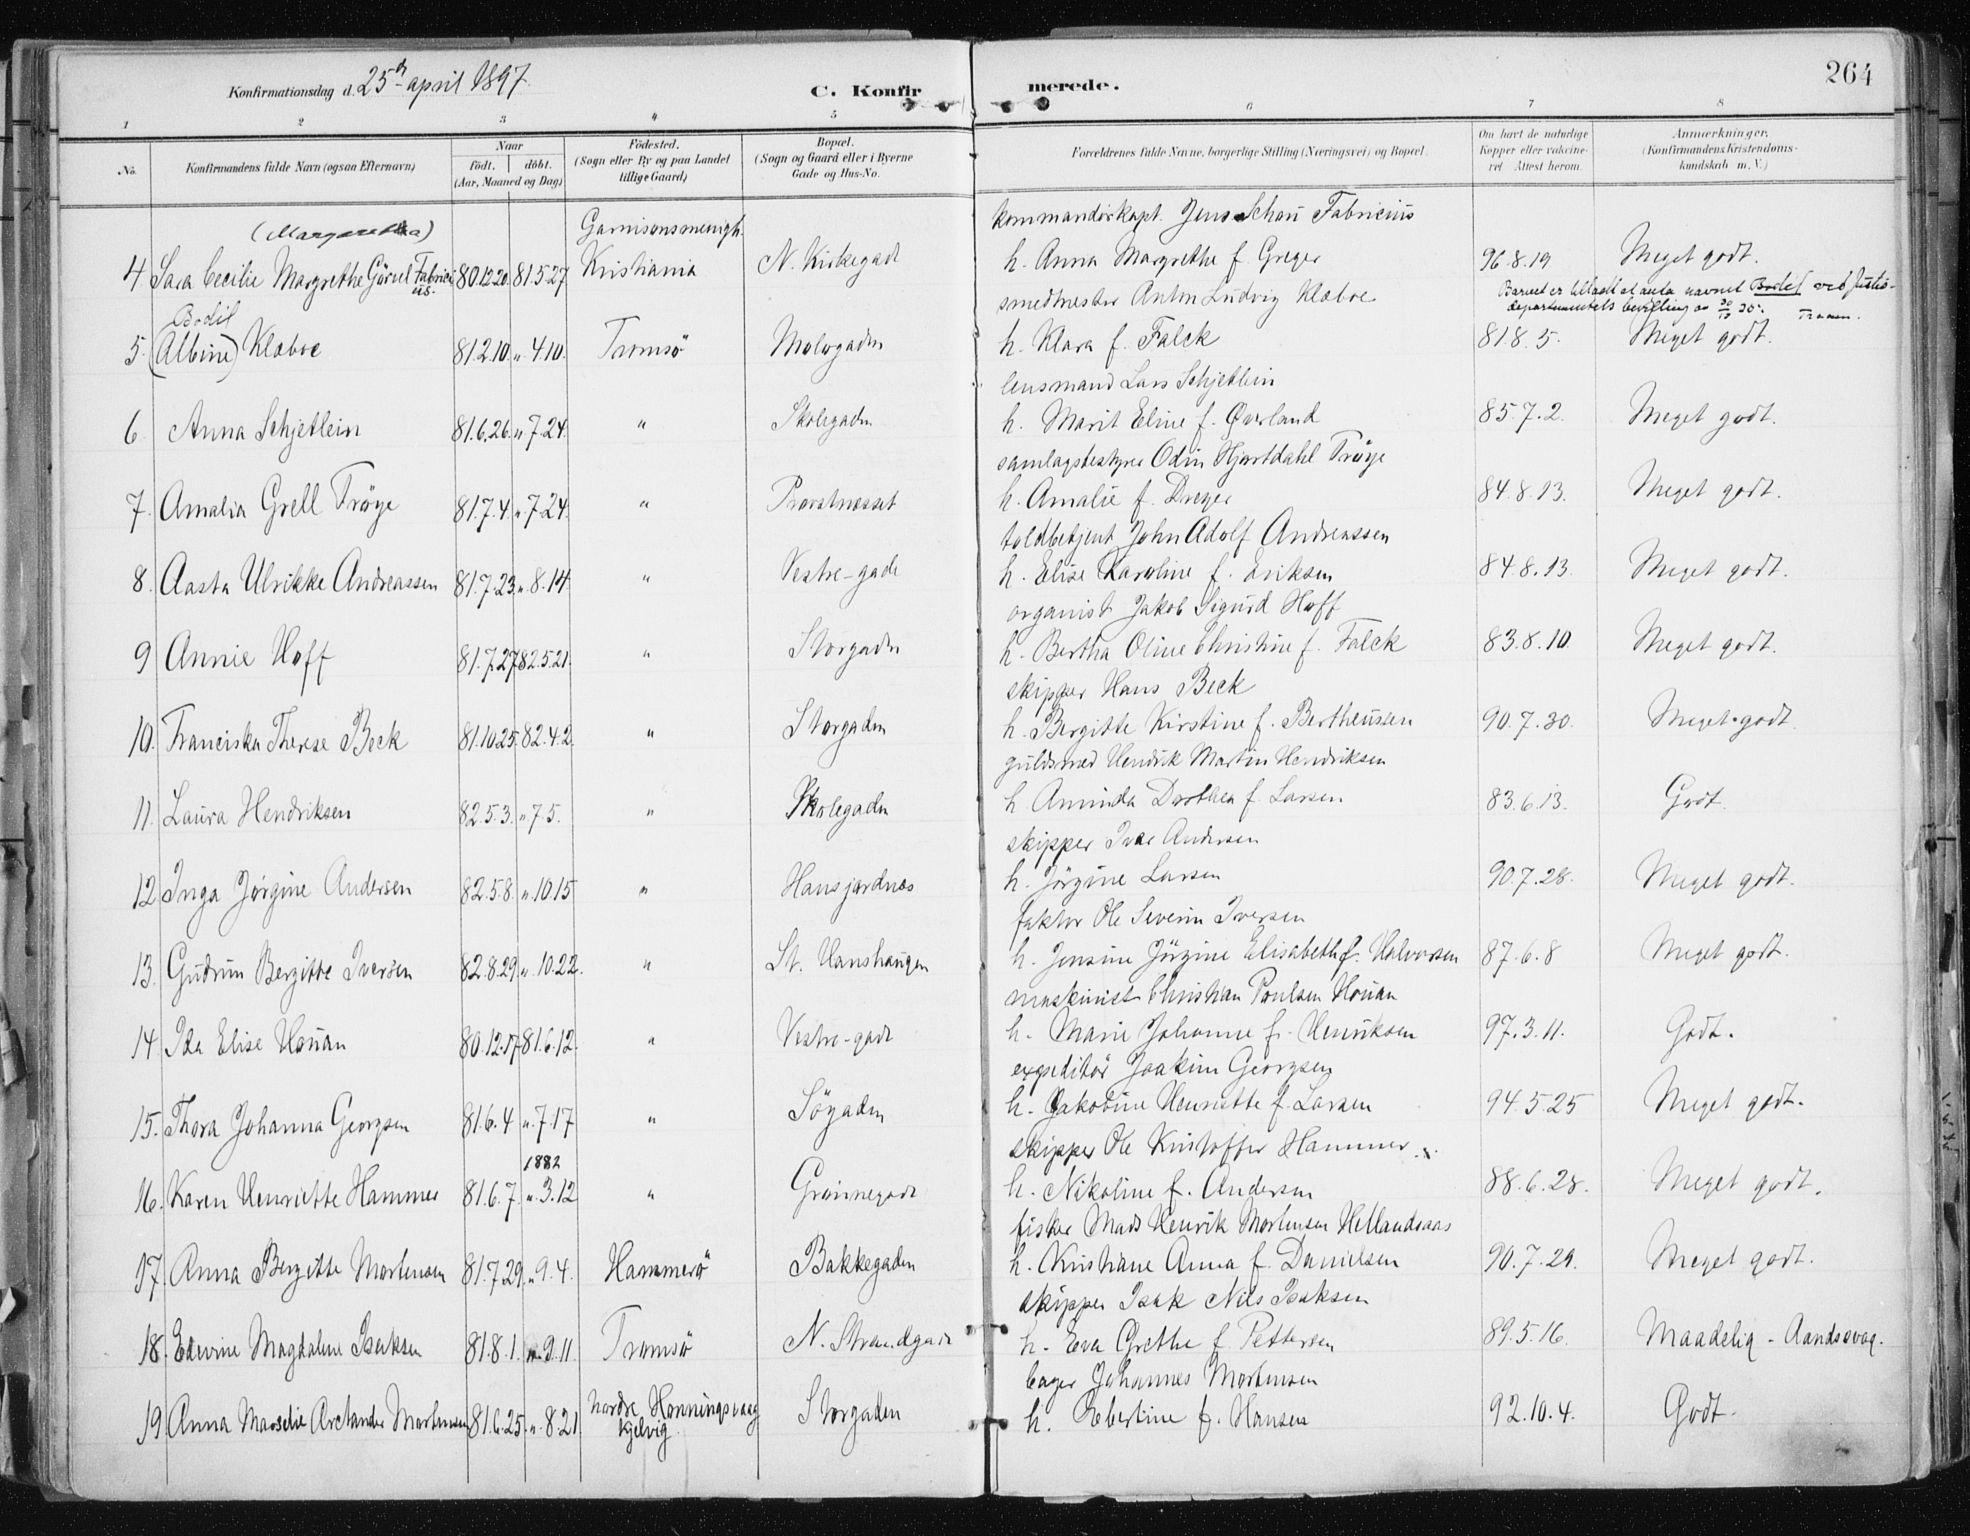 Konfirmationsdag d. 25de april 1897.
C. Konfirmerede.
264
1 2 3 4 5 6 7 8
No.
Konfirmandens fulde Navn (ogsaa Efternavn)
Naar
født. døbt.
(Aar, Maaned og Dag)
Fødested.
(Sogn eller By og paa Landet
tillige Gaard)
Bopæl.
(Sogn og Gaard eller i Byerne
Gade og Hus-No.
Forældrenes fulde Navne, borgerlige Stilling (Næringsvei) og Bopæl.
Om havt de naturlige
Kopper eller vaccine-
ret Attest herom.
Anmærkninger.
(Konfirmandens Kristendoms-
kundskab m. V.)
(Margaretha) Garnisonsmenigh. kommandørkapt. Jens Schou Fabricius
4 Sara Cecilie Margrethe Gürvel Fabricius. 80.12.20. 81.5.27 Kristiania N. Kirkegade h. Anna Margrethe f. Greger 96.8.19 Meget godt.
Bodil smedmester Anton Ludvig Klæboe Barnet er tilladt at anta navnet Bodil ved Justis-
departementets bevilling av 30/10 30.
5. (Albine) Klæboe 81.2.10. „ 4.10. Tromsö Mologaden h. Klara f. Falck 81.8.5. Meget godt.
lensmand Lars Schjetlein
6. Anna Schjetlein 81.6.26. „ 7.24. " Skolegaden h. Marit Eline f. Øverland 85.7.2. Meget godt.
samlagsbestyrer Odin Hjortdahl Fröye
7. Amalia Grell Fröye 81.7.4. „ 7.24. " Prøvstnæsset h. Amalie f. Dreyer 84.8.13. Meget godt.
toldbetjent John Adolf Andreassen
8. Aasta Ulrikke Andreassen 81.7.23. „ 8.14. " Vestre-gade h. Elise Karoline f. Eriksen 84.8.13. Meget godt.
organist Jakob Sigurd Hoff
9 Annie Hoff 81.7.27 82.5.21. " Storgaden h. Bertha Oline Christine f. Falck 83.8.10. Meget godt.
skipper Hans Beck
10. Franciska Therese Beck 81.10.25. 82.4.2. " Storgaden h. Bergitte Kirstine f. Bertheussen 90.7.30. Meget godt.
guldsmed Hendrik Martin Hendriksen
11. Laura Hendriksen 82.5.3. „ 7.5. " Skolegaden h. Aminda Dorthea f. Larsen 83.6.13. Godt.
skipper Ivar Andersen
12 Inga Jörgine Andersen 82.5.8. „ 10.15 " Hansjordnæs h. Jörgine Larsen 90.7.28. Meget godt.
faktor Ole Severin Iversen
13. Gudrun Bergitte Iversen 82.8.29. „ 10.22. " St. Hanshaugen h. Jensine Jörgine Elisabeth f. Halvorsen 87.6.8 Meget godt.
maskinist Christian Poulsen Houan
14 Ida Elise Houan 80.12.17 81.6.12. " Vestre-gade h. Marie Johanne f. Henriksen 97.3.11. Godt.
expeditör Joakim Georgsen
15. Thora Johanna Georgsen 81.6.4 „ 7.17 " Sögaden h. Jakobine Henriette f. Larsen 94.5.25 Meget godt.
1882 skipper Ole Kristoffer Hammer
16. Karen Henriette Hammer 81.6.7. „ 3.12 " Grønnegade h. Nikoline f. Andersen 88.6.28. Meget godt.
fisker Mads Henrik Mortensen Hellandsaas
17. Anna Bergitte Mortensen 81.7.29. „ 9.4. Hammerö Bakkegaden h. Kristiane Anna f. Danielsen 90.7.29. Meget godt.
skipper Isak Nils Isaksen
18. Edevine Magdalene Isaksen 81.8.1. „ 9.11. Tromsö N. Strandgade h. Eva Grethe f. Pettersen 89.5.16. Maadelig - Aandssvag.
bager Johannes Mortensen
19 Anna Marselie Arctander Mortensen 81.6.25. „ 8.21 Nordre Honningsvaag Kjelvig. Storgaden h. Ebertine f. Hansen 92.10.4. Godt.